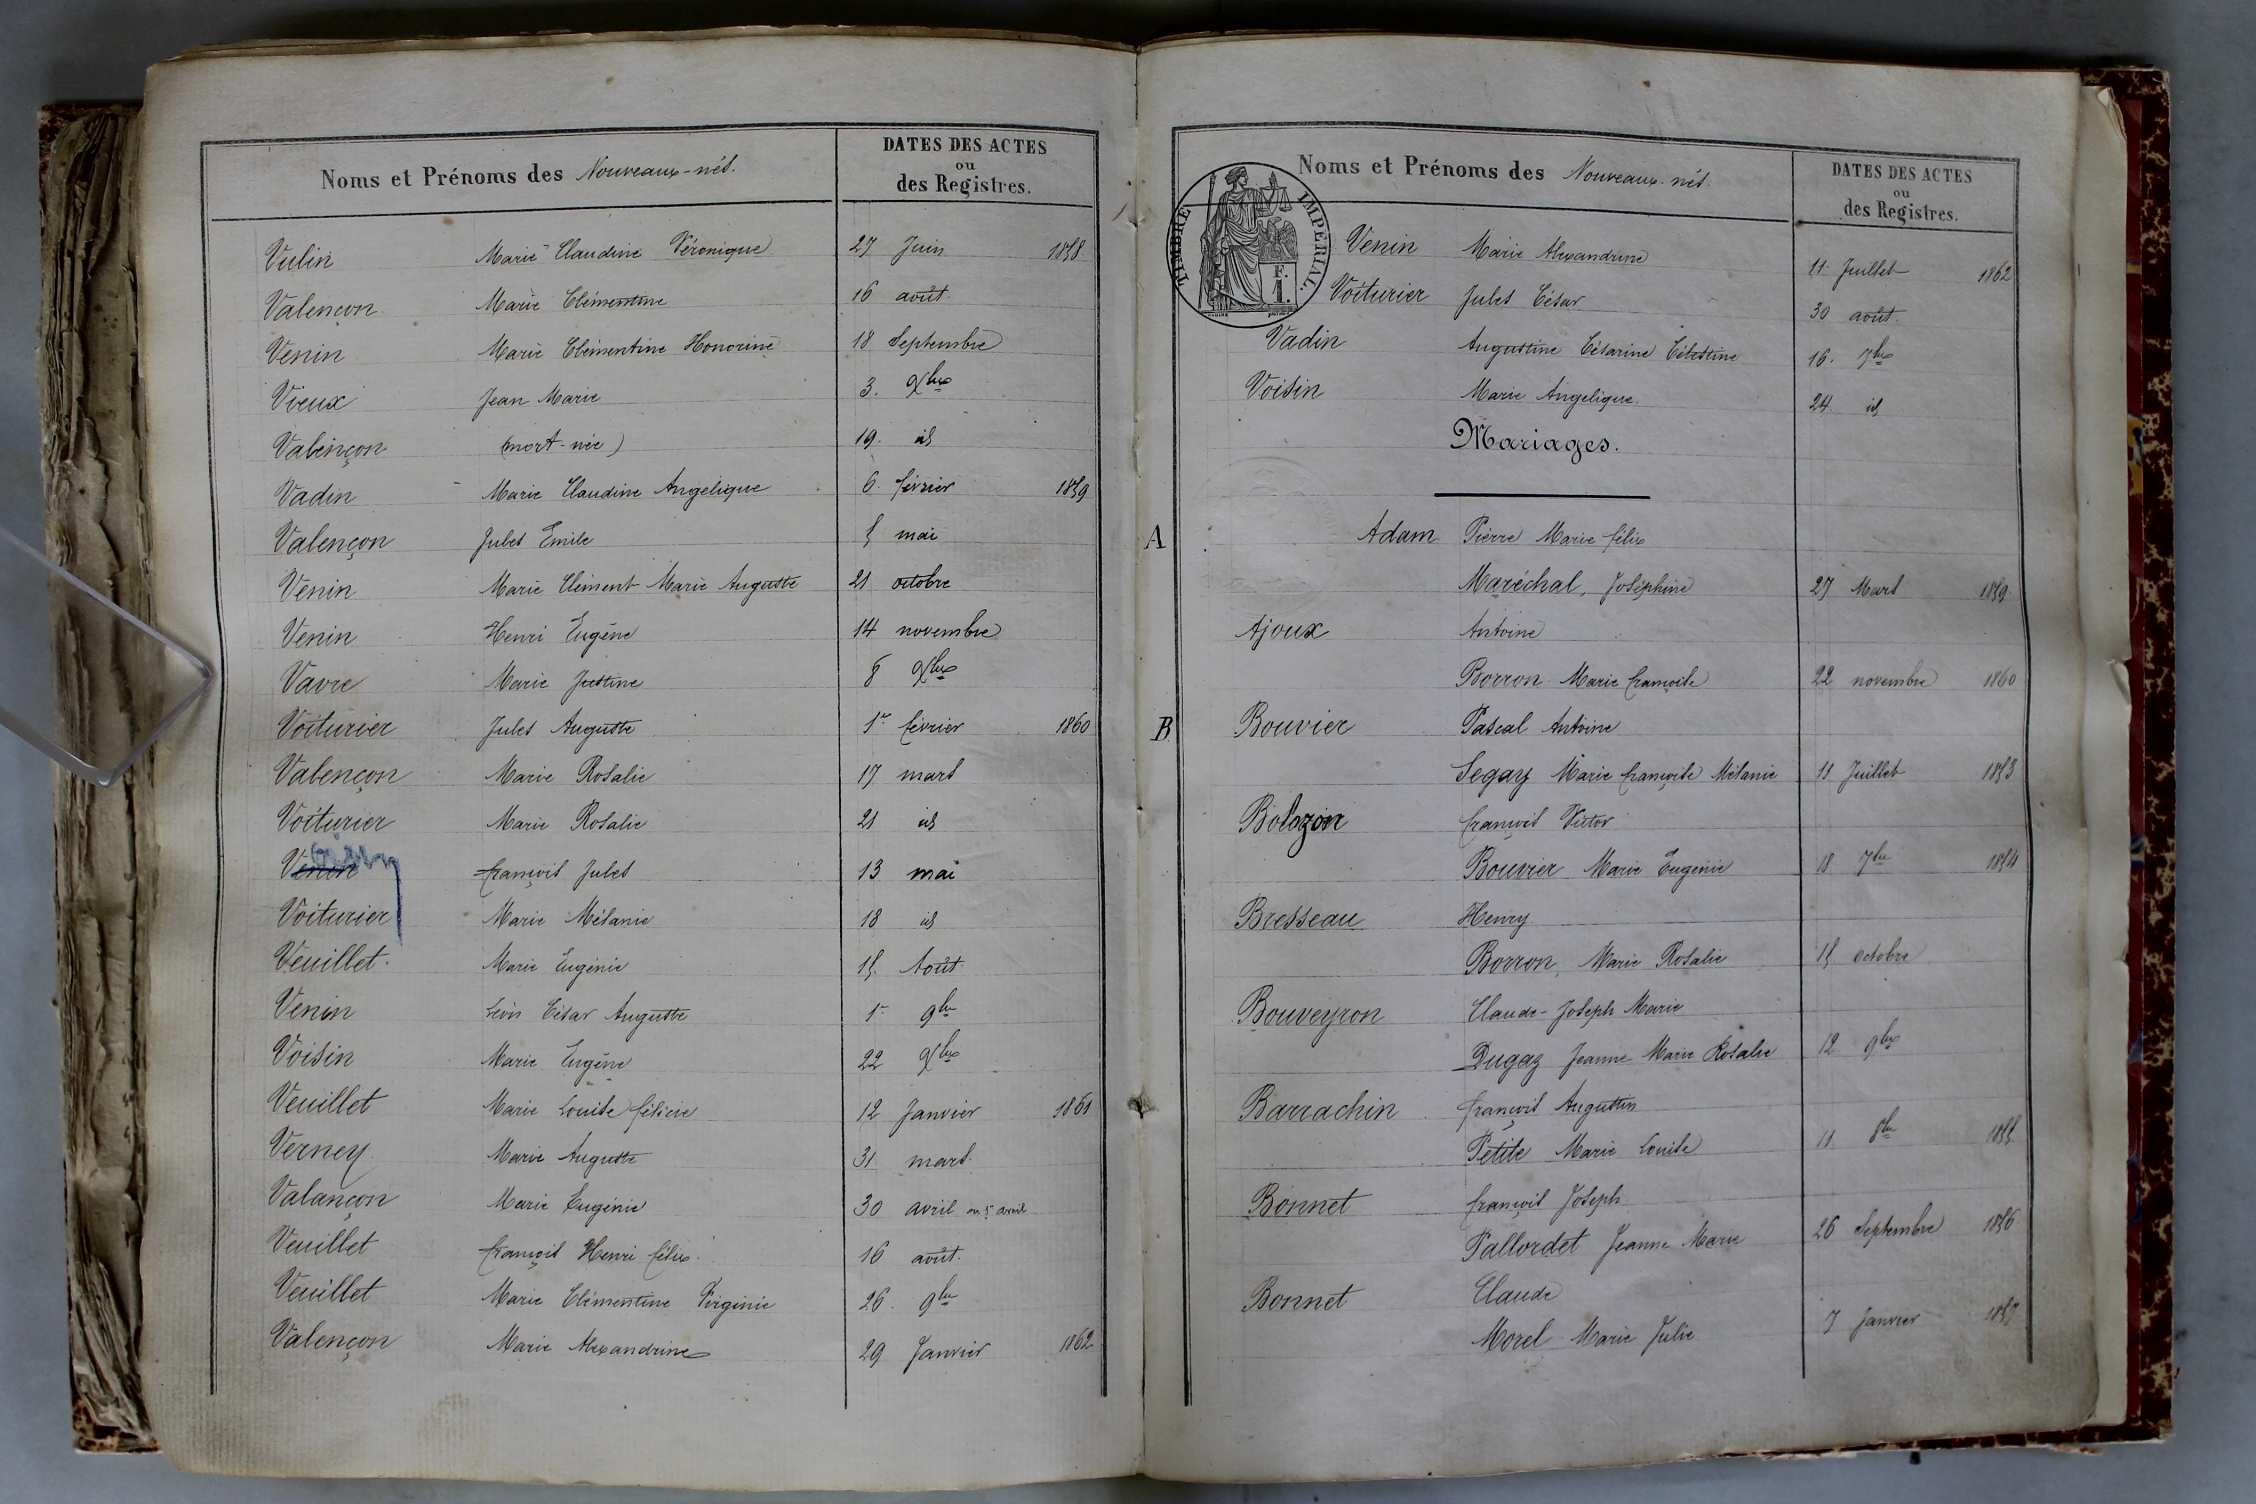 Noms et Prénoms des Nouveaux-nés.
DATES DES ACTES
ou
des Registres.
Vulin Marie Claudine Véronique 27 Juin 1858
Valençon Marie Clémentine 16 août
Venin Marie Clémentine Honorine 18 Septembre
Vieux Jean Marie 3. Xbre
Valençon (mort-née) 19. id
Vadin Marie Claudine Angelique 6. février 1859
Valençon Jules Emile 5 mai
Venin Marie Clément Marie Auguste 21 octobre
Venin Henri Eugène 14 novembre
Vavre Marie Justine 8 Xbre
Voiturier Jules Auguste 1er février 1860
Valençon Marie Rosalie 17 mars
Voiturier Marie Rosalie 21 id
Venin françois Jules 13 mai
Voiturier Marie Mélanie 18 id
Veuillet Marie Eugénie 15. Août
Venin Léon César Auguste 1er 9bre
Voisin Marie Eugène 22 Xbre
Veuillet Marie Louise félicie 12 Janvier 1861
Verney Marie Auguste 31 mars
Valançon Marie Eugénie 30 avril ou 5 avril
Veuillet françois Henri félix 16 août
Veuillet Marie Clémentine Virginie 26. 9bre
Valençon Marie Alexandrine 29 Janvier 1862
TIMBRE IMPÉRIAL.
F.
1.
Noms et Prénoms des Nouveaux-nés.
DATES DES ACTES
ou
des Registres.
Venin Marie Alexandrine 11 Juillet 1862
Voiturier Jules César 30 août.
Vadin Augustine Césarine Célestine 16. 7bre
Voisin Marie Angelique. 24 id
Mariages.
A Adam Pierre Marie félix
Maréchal, Joséphine 27 Mars 1859
Ajoux Antoine
Borron Marie françoise 22 novembre 1860
B Bouvier Pascal Antoine
Segay Marie françoise Mélanie 11 Juillet 1853
Bolozon françois Victor
Bouvier Marie Eugénie 18 7bre 1854
Bresseau Henry
Borron, Marie Rosalie 15 octobre
Bouveyron Claude-Joseph Marie
Dugaz Jeanne Marie Rosalie 12 9bre
Barrachin françois Augustin
Petite Marie Louise 11 8bre 1855
Bonnet françois Joseph
Pallordet Jeanne Marie 26 Septembre 1856
Bonnet Claude
Morel Marie Julie 7 Janvier 1857